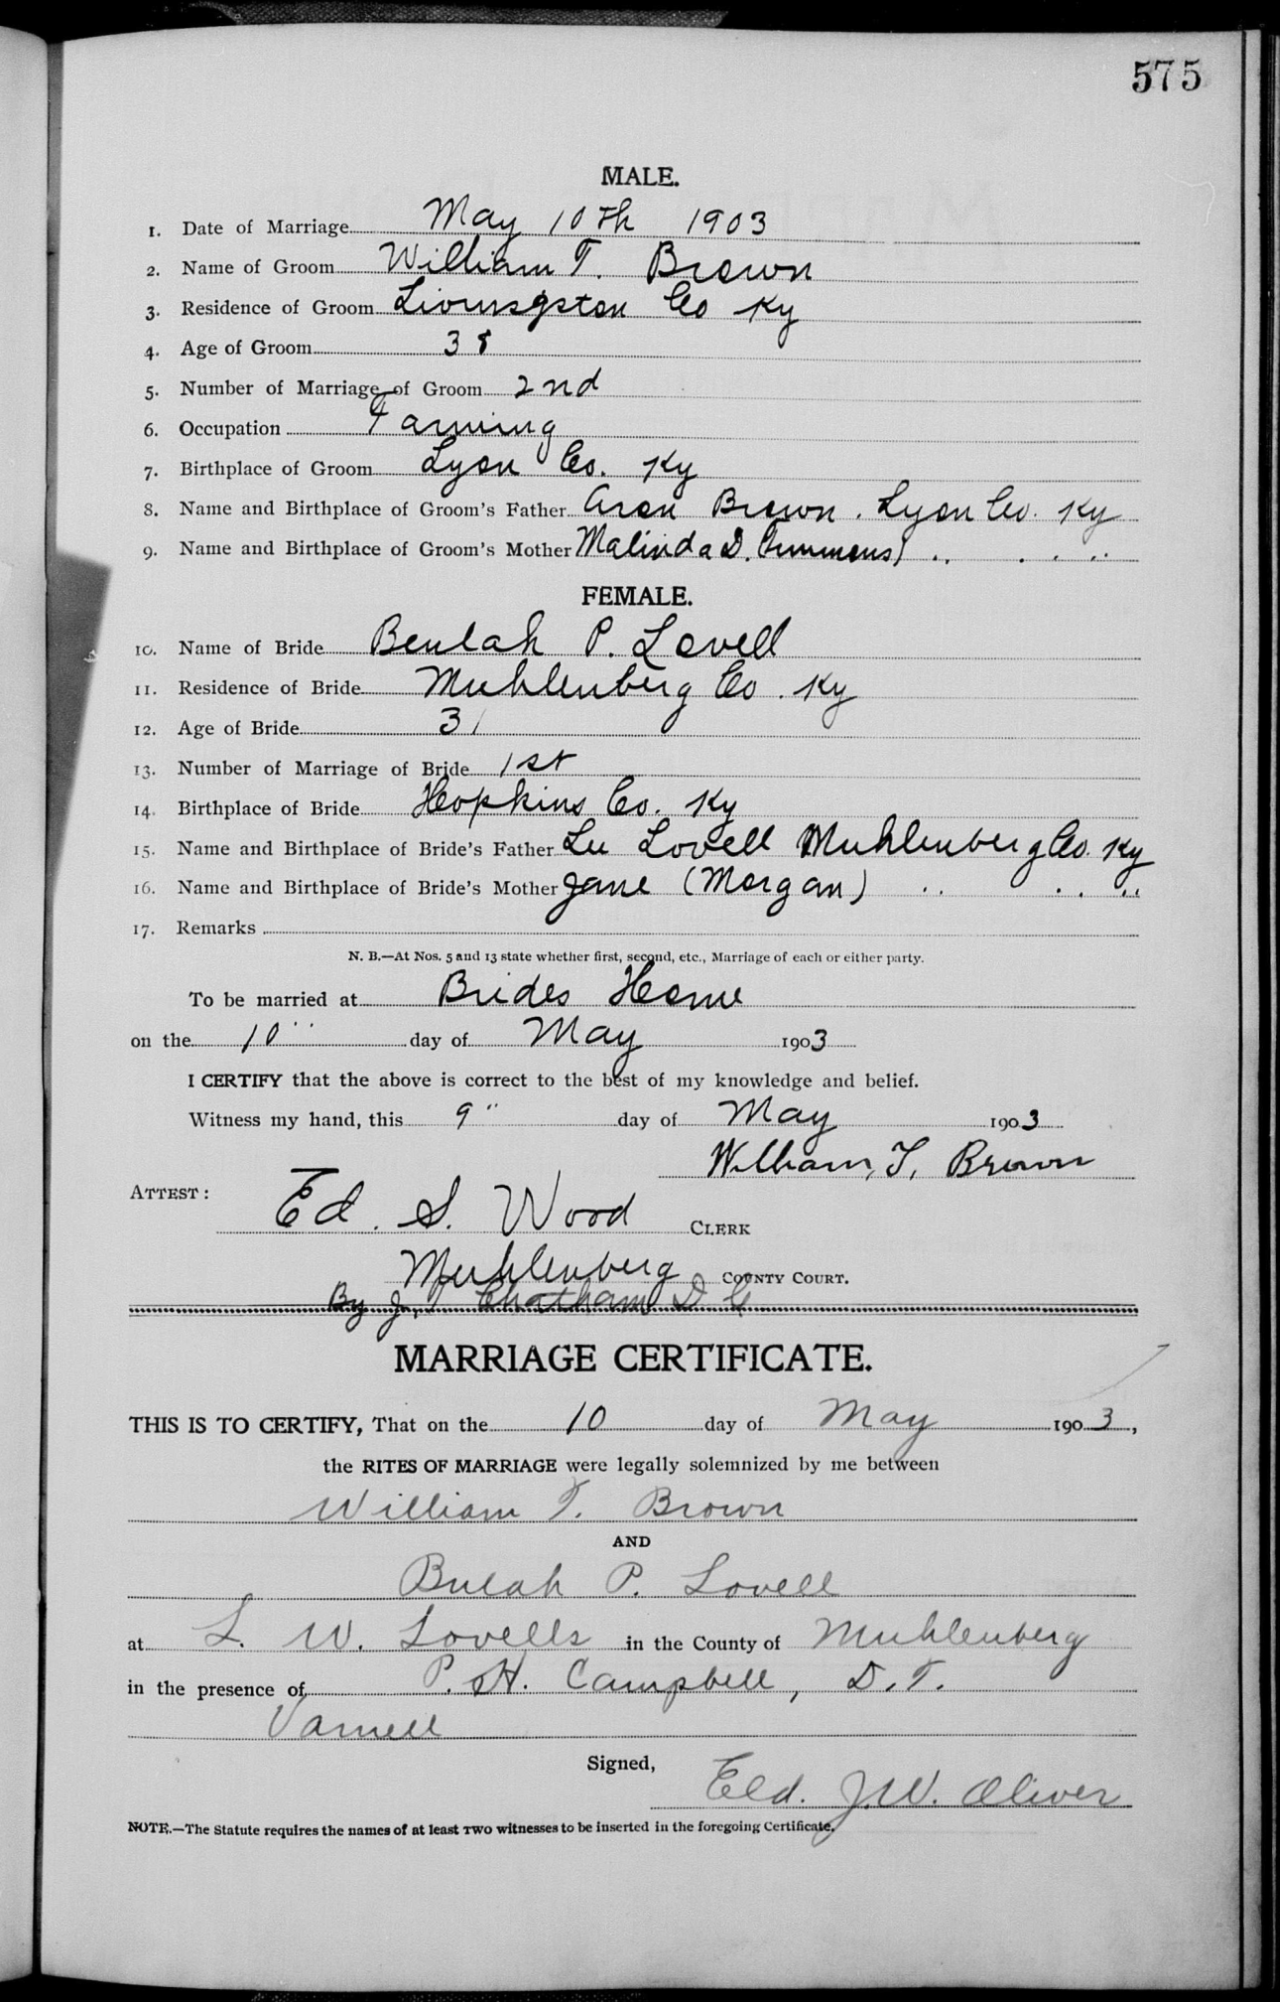 575
MALE.
1. Date of Marriage May 10th 1903
2. Name of Groom William T. Brown
3. Residence of Groom Livingston Co Ky
4. Age of Groom 38
5. Number of Marriage of Groom 2nd
6. Occupation Farming
7. Birthplace of Groom Lyon Co. Ky
8. Name and Birthplace of Groom's Father Aron Brown. Lyon Co. Ky
9. Name and Birthplace of Groom's Mother Malinda D. .. . . ..
FEMALE.
10. Name of Bride Beulah P. Lovell
11. Residence of Bride Muhlenberg Co. Ky
12. Age of Bride 31
13. Number of Marriage of Bride 1st
14. Birthplace of Bride Hopkins Co. Ky
15. Name and Birthplace of Bride's Father Lu Lovell Muhlenberg Co. Ky
16. Name and Birthplace of Bride's Mother Jane (Morgan) .. .. ..
17. Remarks
N. B.—At Nos. 5 and 13 state whether first, second, etc., Marriage of each or either party.
To be married at Brides Home
on the 10" day of May 1903
I CERTIFY that the above is correct to the best of my knowledge and belief.
Witness my hand, this 9" day of May 1903
William, T, Brown
ATTEST: Ed. S. Wood CLERK
Muhlenberg COUNTY COURT.
By J. T Chatham D C
MARRIAGE CERTIFICATE.
THIS IS TO CERTIFY, That on the 10 day of May 1903,
the RITES OF MARRIAGE were legally solemnized by me between
William T. Brown
AND
Bulah P. Lovell
at L. W. Lovells in the County of Muhlenberg
in the presence of P. H. Campbell, D. T.
Varnell
Signed,
Eld. J. W. Oliver
NOTE.—The Statute requires the names of at least TWO witnesses to be inserted in the foregoing Certificate.